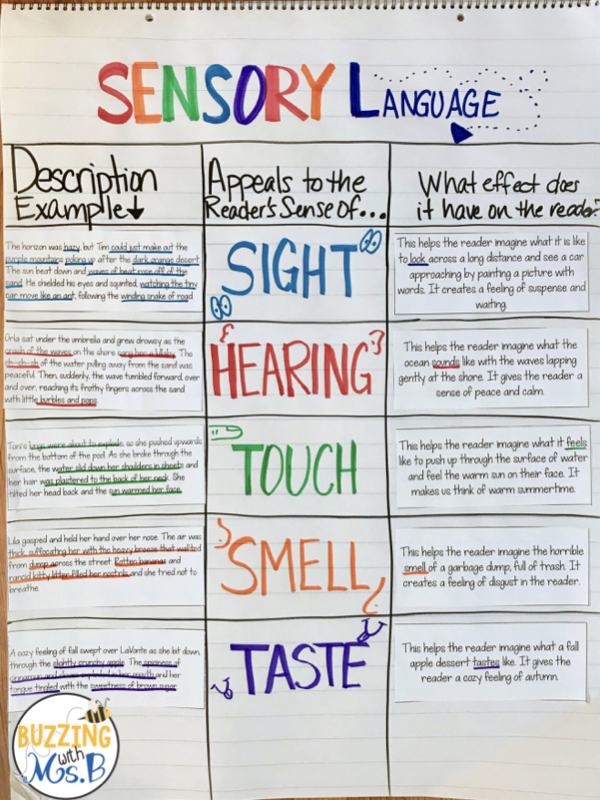 SENSORY LANGUAGE
Description
Example↓
Appeals to the
Reader's Sense of...
What effect does
it have on the reader?
The horizon was hazy, but Tim could just make out the
purple mountains poking up after the dark orange desert.
The sun beat down and waves of heat rose off of the
sand. He shielded his eyes and squinted, watching the tiny
car move like an ant, following the winding snake of road.
SIGHT
This helps the reader imagine what it is like
to look across a long distance and see a car
approaching by painting a picture with
words. It creates a feeling of suspense and
waiting.
Orla sat under the umbrella and grew drowsy as the
crash of the waves on the shore sang her a lullaby. The
sh-sh-sh of the water pulling away from the sand was
peaceful. Then, suddenly, the wave tumbled forward, over
and over, reaching its frothy fingers across the sand
with little burbles and pops.
HEARING
This helps the reader imagine what the
ocean sounds like with the waves lapping
gently at the shore. It gives the reader a
sense of peace and calm.
Toni's lungs were about to explode, so she pushed upwards
from the bottom of the pool. As she broke through the
surface, the water slid down her shoulders in sheets and
her hair was plastered to the back of her neck. She
tilted her head back and the sun warmed her face.
TOUCH
This helps the reader imagine what it feels
like to push up through the surface of water
and feel the warm sun on their face. It
makes us think of warm summertime.
Lila gasped and held her hand over her nose. The air was
thick, suffocating her with the heavy breeze that wafted
from dump across the street. Rotten bananas and
rancid kitty litter filled her nostrils and she tried not to
breathe.
SMELL
This helps the reader imagine the horrible
smell of a garbage dump, full of trash. It
creates a feeling of disgust in the reader.
A cozy feeling of fall swept over LaVonte as she bit down
through the slightly crunchy apple. The spiciness of
cinnamon and her mouth and her
tongue tingled with the sweetness of brown sugar.
TASTE
This helps the reader imagine what a fall
apple dessert tastes like. It gives the
reader a cozy feeling of autumn.
BUZZING
with
Ms.B